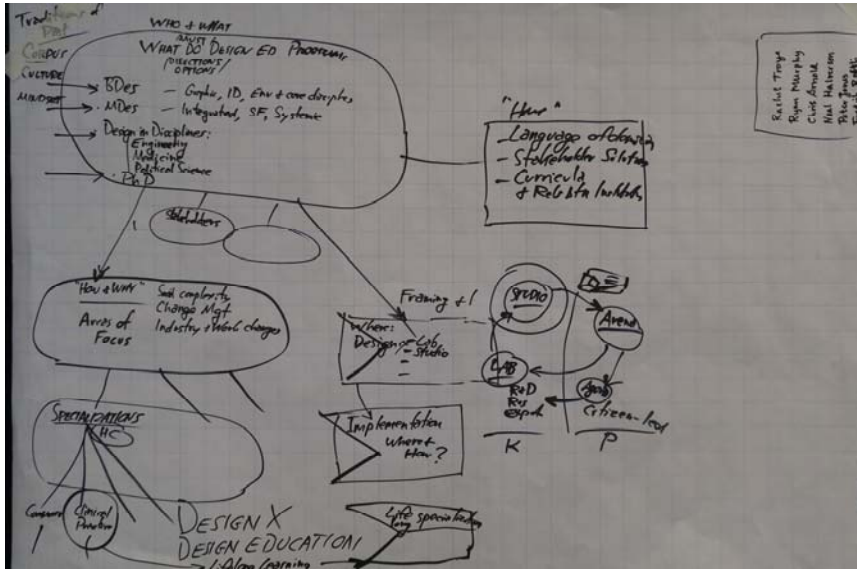 Traditions of
CORPUS
CULTURE
MINDSET
WHO + WHAT
MUST
WHAT DO DESIGN ED PROGRAMS
DIRECTIONS/
OPTIONS/
BDes — Graphic, ID, Env + core disciplines
MDes — Integrated, SF, Systems
Design in Disciplines:
Engineering
Medicine
Political Science
PhD
Stakeholders
"How"
- Language of design
- Stakeholder
- Curricula
Ryan Murphy
Chris Arnold
Neal Halverson
Peter Jones
"HOW + WHY"
Areas of
Focus
Soc complexity
Change Mgt
Industry + Work changes
Framing +
Where:
Design - Lib
- Studio
STUDIO
LAB
R+D
Arena
Agora
Citizen-led
K
P
SPECIALIZATIONS
HC
Implementation
Where +
How?
Clinical
DESIGN X
DESIGN EDUCATION
Lifelong Learning
Life
long